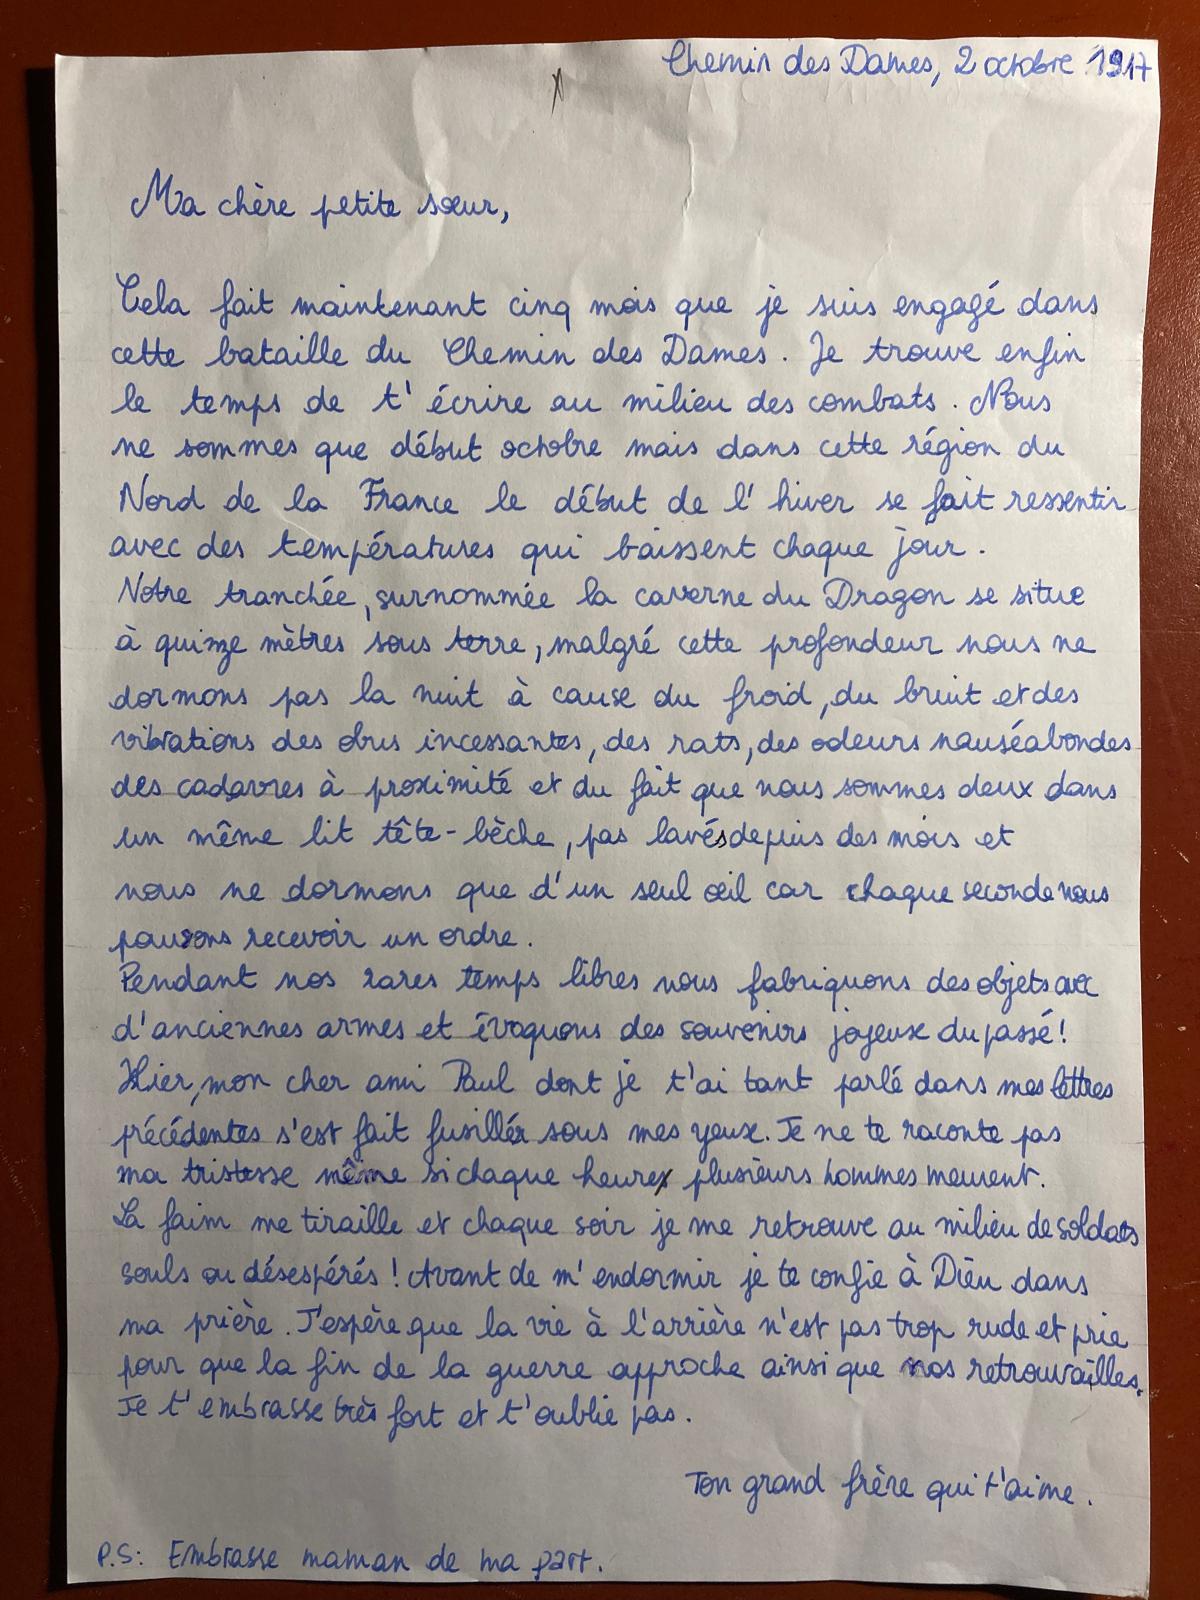 Chemin des Dames, 2 octobre 1917
Ma chère petite sœur,
Cela fait maintenant cinq mois que je suis engagé dans
cette bataille du Chemin des Dames. Je trouve enfin
le temps de t'écrire au milieu des combats. Nous
ne sommes que début octobre mais dans cette région du
Nord de la France le début de l'hiver se fait ressentir
avec des températures qui baissent chaque jour.
Notre tranchée, surnommée la caverne du Dragon se situe
à quinze mètres sous terre, malgré cette profondeur nous ne
dormons pas la nuit à cause du froid, du bruit et des
vibrations des obus incessantes, des rats, des odeurs nauséabondes
des cadavres à proximité et du fait que nous sommes deux dans
un même lit tête-bêche, pas lavés depuis des mois et
nous ne dormons que d'un seul œil car chaque seconde nous
pouvons recevoir un ordre.
Pendant nos rares temps libres nous fabriquons des objets avec
d'anciennes armes et évoquons des souvenirs joyeux du passé!
Hier, mon cher ami Paul dont je t'ai tant parlé dans mes lettres
précédentes s'est fait fusillér sous mes yeux. Je ne te raconte pas
ma tristesse même si chaque heure plusieurs hommes meurent.
La faim me tiraille et chaque soir je me retrouve au milieu de soldats
souls ou désespérés! Avant de m'endormir je te confie à Dieu dans
ma prière. J'espère que la vie à l'arrière n'est pas trop rude et prie
pour que la fin de la guerre approche ainsi que nos retrouvailles.
Je t'embrasse très fort et t'oublie pas.
Ton grand frère qui t'aime.
P.S: Embrasse maman de ma part.